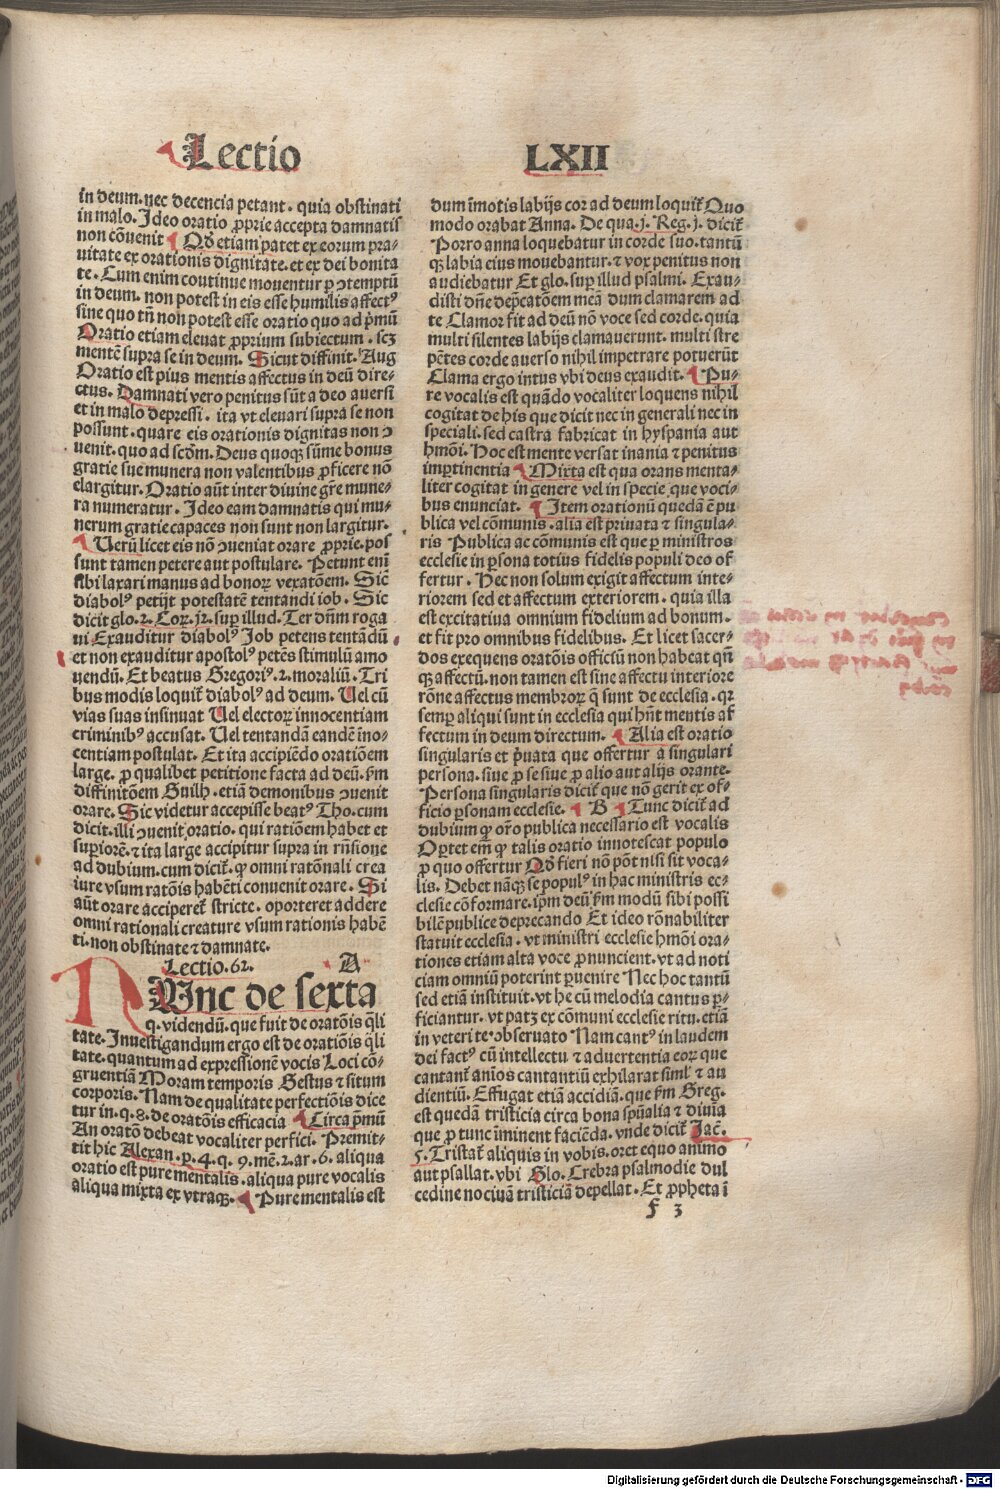 Lectio LXII
in deum. nec decencia petant. quia obstinati
in malo. Ideo oratio ꝓprie accepta damnatis
non cōvenit ¶ Qđ etiam patet ex eorum pra-
uitate ex orationis dignitate. et ex dei bonita
te. Cum enim continue moventur ꝑ ↄtemptū
in deum. non potest in eis esse humilis affectꝰ
sine quo tn̄ non potest esse oratio quo ad pͥmū
Oratio etiam eleuat ꝓprium subiectum. scꝫ
mentē supra se in deum. Sicut diffinit. Aug
Oratio est pius mentis affectus in deū dire-
ctus. Damnati vero penitus sūt a deo auersi
et in malo depressi. ita vt eleuari supra se non
possunt. quare eis orationis dignitas non ↄ
uenit. quo ad scđm. Deus quoqꝫ sūme bonus
gratie sue munera non valentibus ꝓficere nō
elargitur. Oratio aūt inter diuine gr̄e mune-
ra numeratur. Ideo eam damnatis qui mu-
nerum gratie capaces non sunt non largitur.
¶ Verū licet eis nō ↄueniat orare ꝓprie. pos
sunt tamen petere aut postulare. Petunt eni
sibi laxari manus ad bonoꝝ vexatōem. Sic
diabolꝰ petijt potestatē tentandi iob. Sic
dicit glo. 2. Coꝝ. j2. suꝑ illud. Ter dn̄m roga
ui Exauditur diabolꝰ Job petens tentādū
et non exauditur apostolꝰ petēs stimulū amo
uendū. Et beatus Gregoriꝰ. 2. moraliū. Tri
bus modis loquit̄ diabolꝰ ad deum. Vel cū
vias suas insinuat Vel electoꝝ innocentiam
criminibꝰ accusat. Vel tentandā eandē ino-
centiam postulat. Et ita accipiēdo oratiōem
large. ꝓ qualibet petitione facta ad deū. ẜm
diffinitōem Guilh. etiā demonibus ↄuenit
orare. Sic videtur accepisse beatꝰ Tho. cum
dicit. illi ↄuenit oratio. qui ratiōem habet et
suꝑiorē. ⁊ ita large accipitur supra in rn̄sione
ad dubium. cum dicit̄. ꝙ omni ratōnali crea
iure vsum ratōis habēti convenit orare. Si
aūt orare acciperet̄ stricte. oporteret addere
omni rationali creature vsum rationis habē
ti. non obstinate ⁊ damnate.
Lectio. 62. A
NUnc de sexta
q. videndū. que fuit de oratōis q̄li
tate. Inuestigandum ergo est de oratiōis q̄li
tate. quantum ad expressionē vocis Loci cō-
gruentiā Moram temporis Gestus ⁊ situm
corporis. Nam de qualitate perfectiōis dice
tur in. q. 8. de oratōis efficacia ¶ Circa pͥmū
An oratō debeat vocaliter perfici. Premit-
tit hic Alexan. p. 4. q. 9. mē. 2. ar. 6. aliqua
oratio est pure mentalis. aliqua pure vocalis
aliqua mixta ex vtraqꝫ. ¶ Pure mentalis est
dum īmotis labijs cor ad deum loquit̄ Quo
modo orabat Anna. De qua. j. Reg. j. dicit̄
Porro anna loquebatur in corde suo. tantū
qꝫ labia eius mouebantur. ⁊ vox penitus non
audiebatur Et glo. suꝑ illud psalmi. Exau-
disti dn̄e dep̄catōem meā dum clamarem ad
te Clamor fit ad deū nō voce sed corde. quia
multi silentes labijs clamauerunt. multi stre
pētes corde auerso nihil impetrare potuerūt
Clama ergo intus vbi deus exaudit. ¶ Pu-
re vocalis est quādo vocaliter loquens nihil
cogitat de his que dicit nec in generali nec in
speciali. sed castra fabricat in hyspania aut
hmōi. Hoc est mente versat inania ⁊ penitus
imꝑtinentia ¶ Mixta est qua orans menta-
liter cogitat in genere vel in specie que voci-
bus enunciat. ¶ Item orationū quedā ē pu
blica vel cōmunis. alia est priuata ⁊ singula-
ris Publica ac cōmunis est que ꝑ ministros
ecclesie in ꝑsona totius fidelis populi deo of
fertur. Hec non solum exigit affectum inte-
riorem sed et affectum exteriorem. quia illa
est excitatiua omnium fidelium ad bonum.
et fit pro omnibus fidelibus. Et licet sacer-
dos exequens oratōis officiū non habeat qn̄
qꝫ affectū. non tamen est sine affectu interiore
rōne affectus membroꝝ q̄ sunt de ecclesia. qꝛ
semꝑ aliqui sunt in ecclesia qui hn̄t mentis af
fectum in deum directum. ¶ Alia est oratio
singularis et p̄uata que offertur a singulari
persona. siue ꝓ se siue ꝓ alio aut alijs orante.
Persona singularis dicit̄ que nō gerit ex of-
ficio ꝑsonam ecclesie. ¶ B ¶ Tunc dicit̄ ad
dubium ꝙ or̄o publica necessario est vocalis
Oꝑtet em̄ ꝙ talis oratio innotescat populo
ꝓ quo offertur Qđ fieri nō pōt nisi sit voca-
lis. Debet nāqꝫ se populꝰ in hac ministris ec-
clesie cōformare. ip̄m deū ẜm modū sibi possi
bilē publice deprecando Et ideo rōnabiliter
statuit ecclesia. vt ministri ecclesie hmōi ora-
tiones etiam alta voce ꝓnuncient. vt ad noti
ciam omniū poterint ꝑuenire Nec hoc tantū
sed etiā instituit. vt he cū melodia cantus ꝑ-
ficiantur. vt patꝫ ex cōmuni ecclesie ritu. etiā
in veteri te° obseruato Nam cantꝰ in laudem
dei factꝰ cū intellectu ⁊ aduertentia eoꝝ que
cantant̄ anīos cantantiū exhilarat simĺ ⁊ au
dientiū. Effugat etiā accidiā. que ẜm Greg.
est quedā tristicia circa bona spūalia ⁊ diuīa
que ꝓ tunc īminent faciēda. vnde dicit̄ Jac̄.
5. Tristat̄ aliquis in vobis. oret equo animo
aut psallat. vbi Glo. Crebra psalmodie dul
cedine nociuā tristiciā depellat. Et ꝓpheta ī
f 3
Digitalisierung gefördert durch die Deutsche Forschungsgemeinschaft - DFG